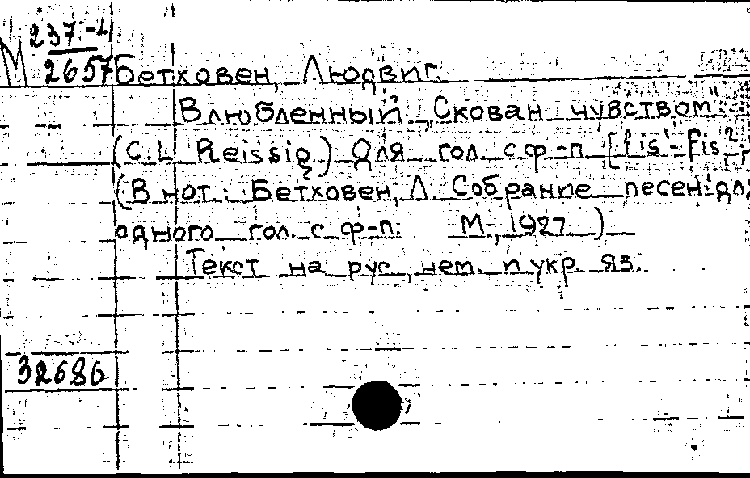 М 237.-1
2657 Бетховен, Людвиг.
Влюбленный „Скован чувством"
(C.L. Reissig) Для гол. с ф-п [fis¹-fis²]
(В нот.: Бетховен, Л. Собрание песен для
одного гол. с ф-п. М., 1927)
Текст на рус., нем. и укр яз.
32686